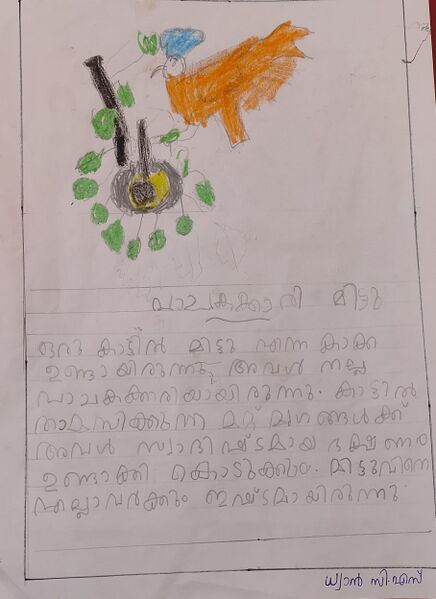 പാചകക്കാരി മിട്ടു
ഒരു കാട്ടിൽ മിട്ടു എന്ന കാക്ക
ഉണ്ടായിരുന്നു. അവൾ നല്ല
പാചകക്കരിയായിരുന്നു. കാട്ടിൽ
താമസിക്കുന്ന മറ്റ് മൃഗങ്ങൾക്ക്
അവൾ സ്വാദിഷ്ടമായ ഭക്ഷണം
ഉണ്ടാക്കി കൊടുക്കും. മിട്ടുവിനെ
എല്ലാവർക്കും ഇഷ്ടമായിരുന്നു.
ധ്യാൻ സി.എസ്